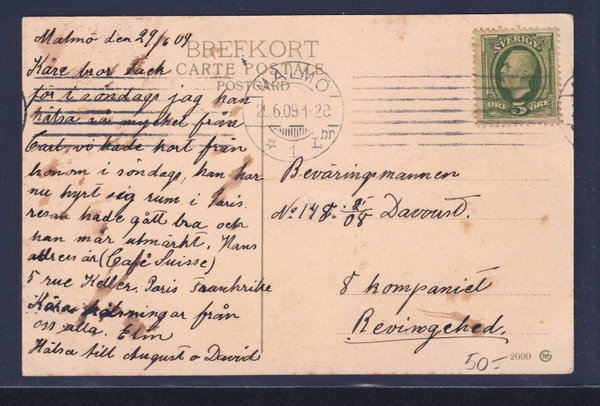 Malmö den 29/6 09
BREFKORT
CARTE POSTALE
POSTCARD
Käre bror Tack
för i söndags jag kan
hälsa så mycket från
Carl, vi hade kort från
honom i söndags, han har
nu hyrt sig rum i Paris
resan hade gått bra och
han mår utmärkt. Hans
adress är (Café Suisse)
5 rue Keller, Paris Frankrike
Kära hälsningar från
oss alla.
Hälsa till August o David
MALMÖ
.6.09 1-2
1 Lbr
SVERIGE
ÖRE 5 ÖRE
Beväringsmannen
No 148. 2/08 Davoust.
8 kompaniet
Revingehed.
50-
2699